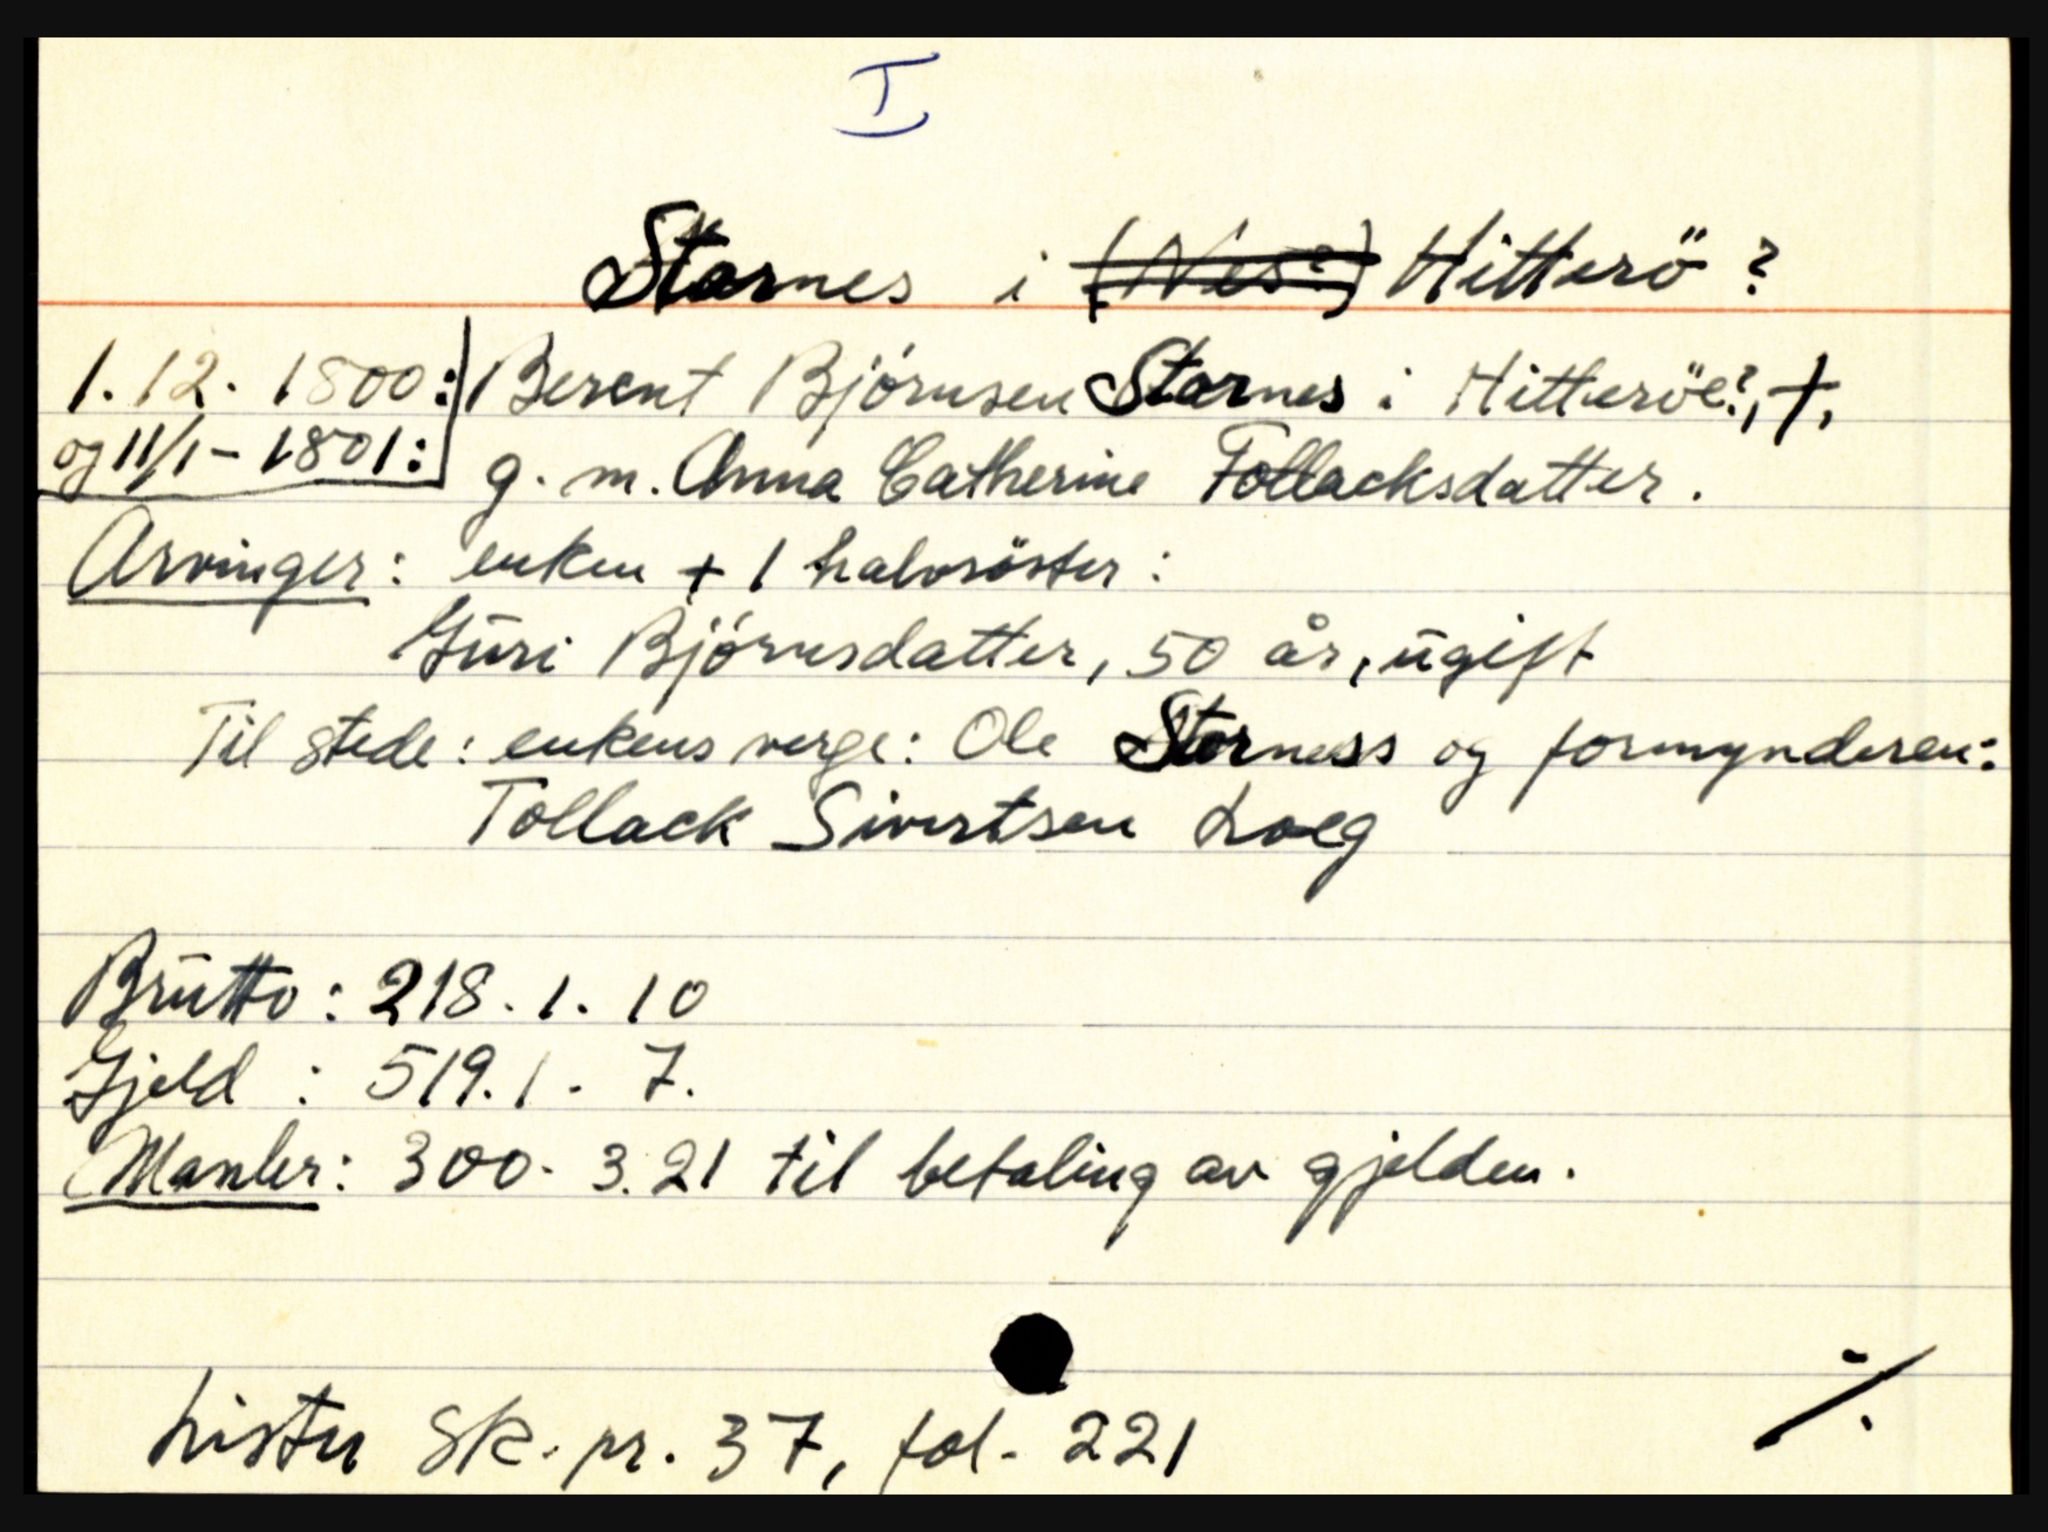 I
Starnes i (Nes?) Hitterö?
1.12. 1800: Berent Björnsen Starnes i Hitteröe?, †,
og 11/1 - 1801: g. m. Anna Catherine Tollacksdatter.
Arvinger: enken + 1 halvsöster:
Gūri Björnsdatter, 50 år, ūgift
Til stede: enkens verge: Ole Storness og formynderen:
Tollack Sivertsen Loeg
Brūtto: 218. 1. 10
Gjeld : 519. 1. 7.
Manler: 300. 3. 21 til betaling av gjelden.
Lister Sk. pr. 37, fol. 221
./.